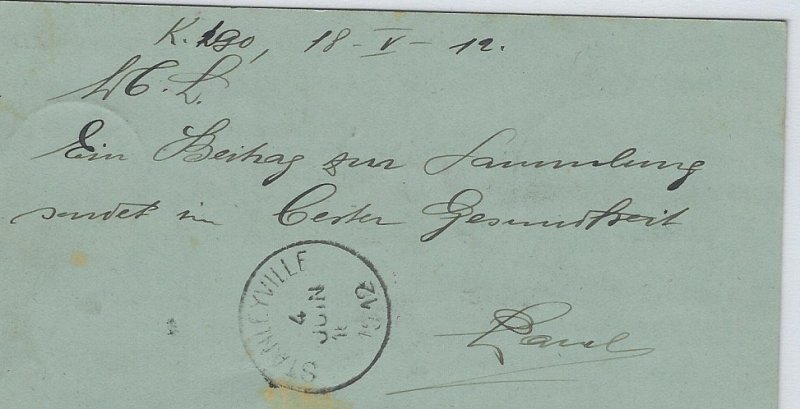 18-V-12.
M. L.
Ein Beitrag zur Sammlung
sendet in bester Gesundheit
STANLEYVILLE
4
JUIN
1912
Paul